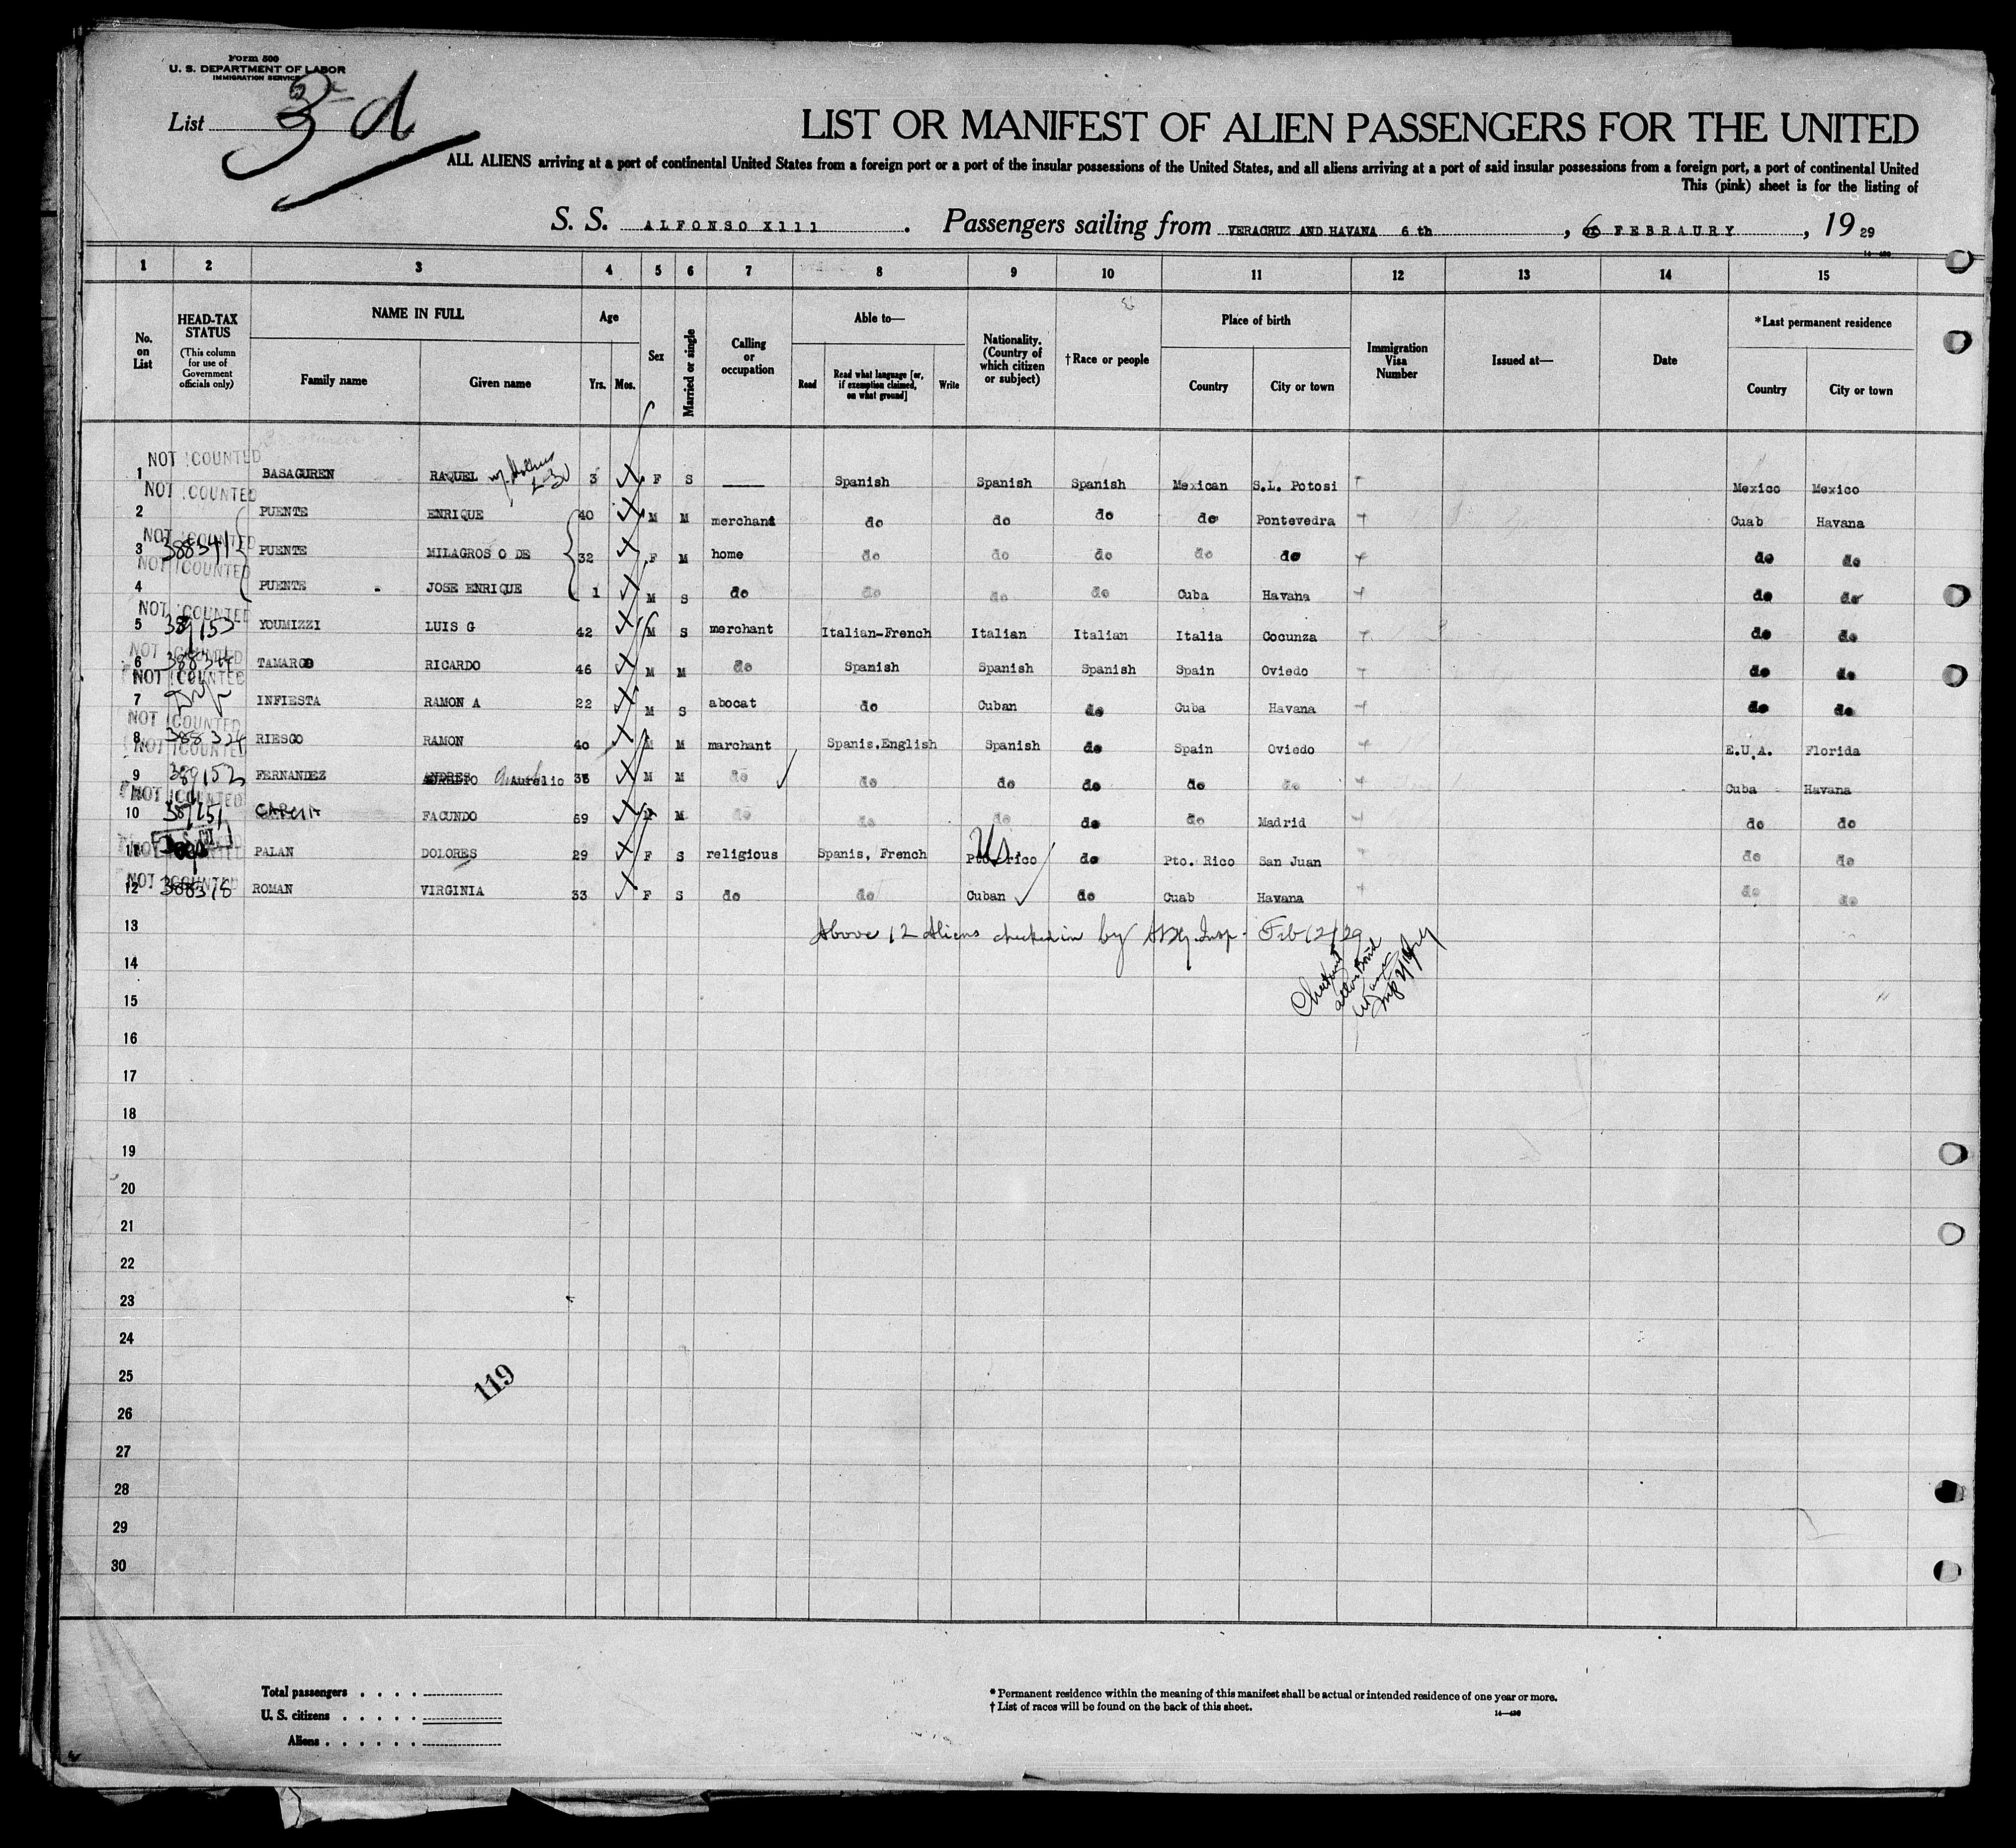 Form 500
U. S. DEPARTMENT OF LABOR
IMMIGRATION SERVICE
List 3 d
LIST OR MANIFEST OF ALIEN PASSENGERS FOR THE UNITED
ALL ALIENS arriving at a port of continental United States from a foreign port or a port of the insular possessions of the United States, and all aliens arriving at a port of said insular possessions from a foreign port, a port of continental United
This (pink) sheet is for the listing of
S. S. ALFONSO X111 . Passengers sailing from VERACRUZ AND HAVANA 6 th , 6 FEBRAURY , 19 29
14—430
1 2 3 4 5 6 7 8 9 10 11 12 13 14 15
No. on List
HEAD-TAX STATUS (This column for use of Government officials only)
NAME IN FULL
Family name Given name
Age
Yrs. Mos.
Sex
Married or single
Calling or occupation
Able to—
Read Read what language [or, if exemption claimed, on what ground] Write
Nationality. (Country of which citizen or subject)
†Race or people
Place of birth
Country City or town
Immigration Visa Number
Issued at—
Date
*Last permanent residence
Country City or town
1 NOT COUNTED BASAGUREN RAQUEL 3 F S Spanish Spanish Spanish Mexican S.L. Potosi Mexico Mexico
2 NOT COUNTED PUENTE ENRIQUE 40 M M merchant do do do do Pontevedra Cuab Havana
3 NOT COUNTED 388341 PUENTE MILAGROS O DE 32 F M home do do do do do do do
4 NOT COUNTED PUENTE JOSE ENRIQUE 1 M S do do do do Cuba Havana do do
5 NOT COUNTED 389153 YOUMIZZI LUIS G 42 M S merchant Italian-French Italian Italian Italia Cocunza do do
6 NOT COUNTED TAMARGO RICARDO 46 M M do Spanish Spanish Spanish Spain Oviedo do do
7 NOT COUNTED INFIESTA RAMON A 22 M S abocat do Cuban do Cuba Havana do do
8 NOT COUNTED 388324 RIESGO RAMON 40 M M marchant Spanis.English Spanish do Spain Oviedo E.U.A. Florida
9 NOT COUNTED 389152 FERNANDEZ Aurelio M M do do do do do do Cuba Havana
10 NOT COUNTED 389151 FACUNDO 69 M M do do do do do Madrid do do
11 PALAN DOLORES 29 F S religious Spanis, French Us do Pto. Rico San Juan do do
12 NOT COUNTED 388318 ROMAN VIRGINIA 33 F S do do Cuban do Cuab Havana do do
13 Above 12 Aliens checked in by Insp. Feb 12/29
14
15
16
17
18
19
20
21
22
23
24
25
119
26
27
28
29
30
Total passengers . . . .
U. S. citizens . . . . .
Aliens . . . . . .
* Permanent residence within the meaning of this manifest shall be actual or intended residence of one year or more.
† List of races will be found on the back of this sheet.
14—430